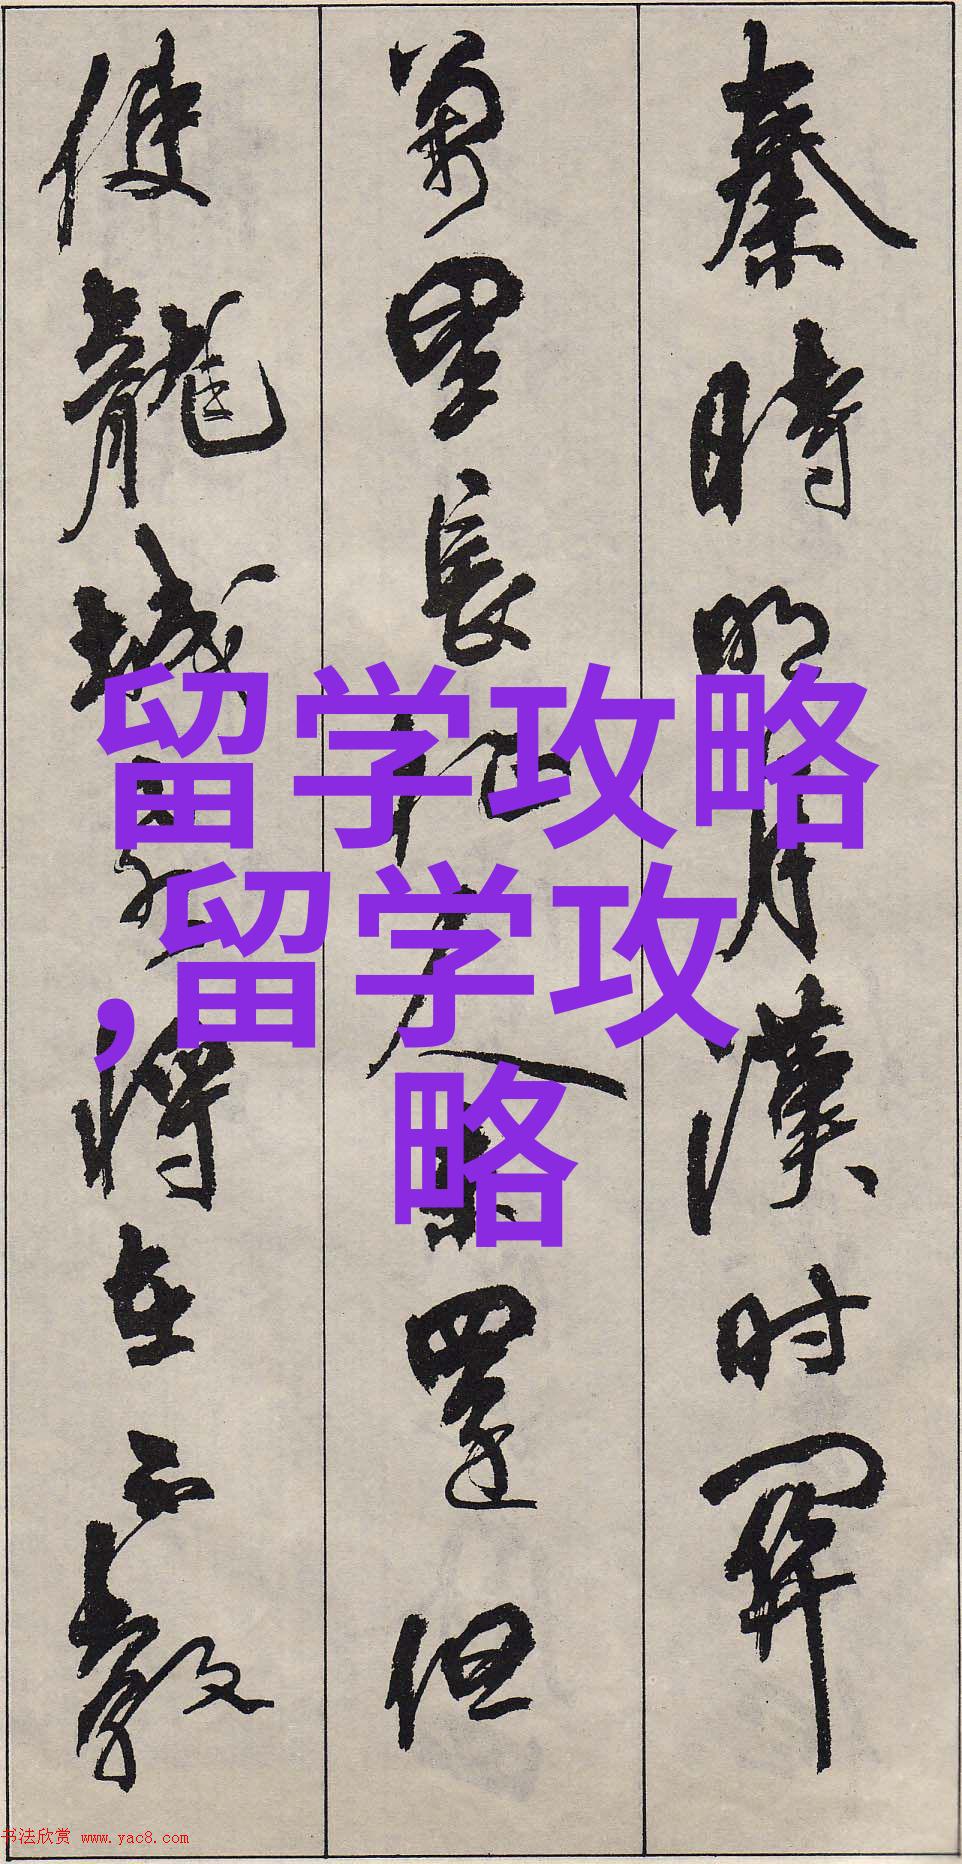 秦時明月漢时關
萬里長征人未還但
使龍城飛將在不教
留学攻略
,留学攻
略
书法欣赏 www.yac8.com